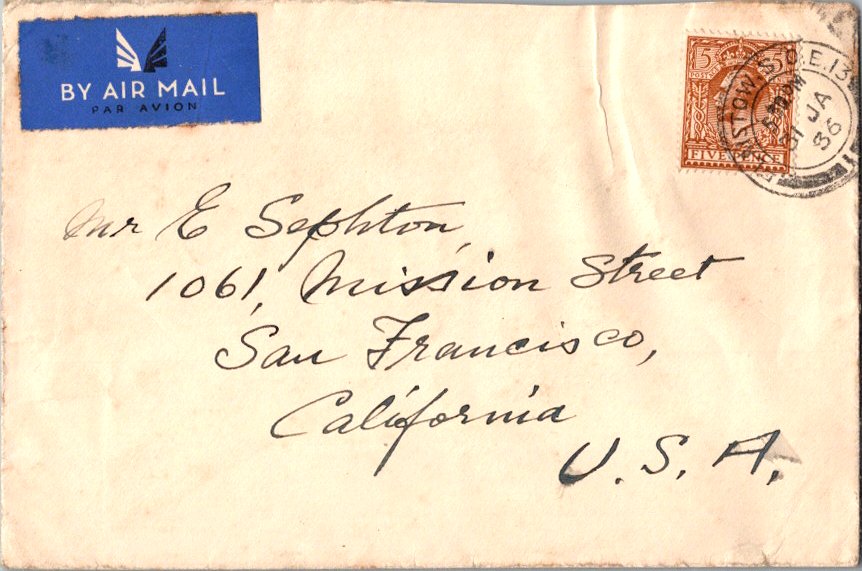 BY AIR MAIL
PAR AVION
5 5
POSTAGE
FIVE PENCE
PLAISTOW S.O. E.13
31 JA
36
Mr E Sephton,
1061, Mission Street
San Francisco,
California
U.S.A.